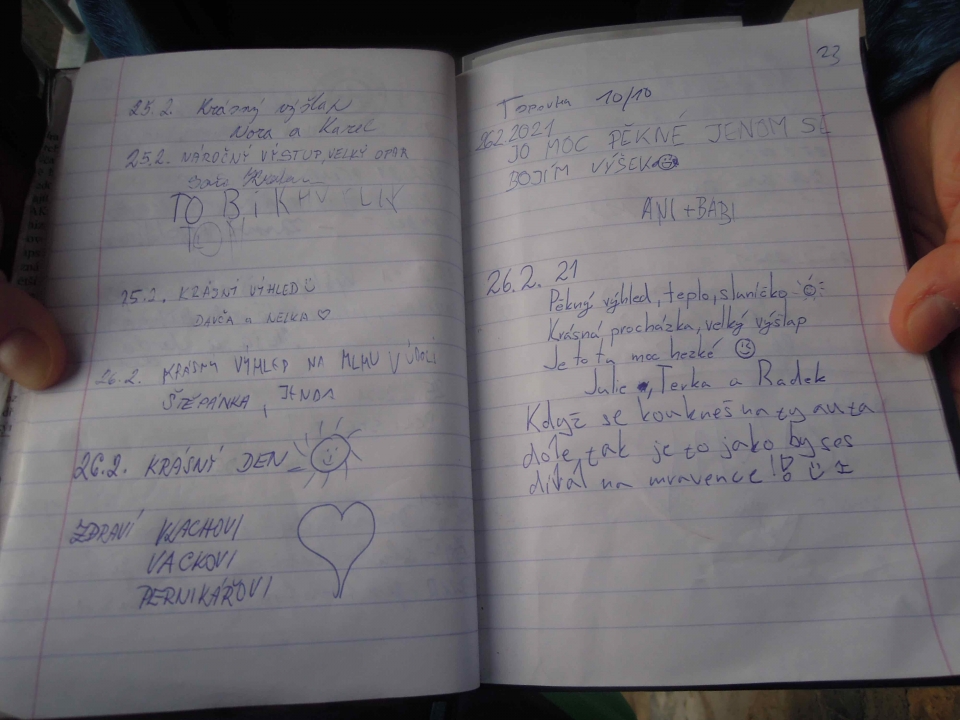 25.2. Krásný výšlap
Nora a Karel
25.2. NÁROČNÝ VÝSTUP, VELKÝ OPAR
TO
25.2. KRÁSNÝ VÝHLED
DAVČA a NELKA
26.2. KRÁSNÝ VÝHLED NA MLHU V ÚDOLÍ
ŠTĚPÁNKA, JENDA
26.2. KRÁSNÝ DEN
ZDRAVÍ VLACHOVI
VACKOVI
PERNIKÁŘOVI
23
Topovka 10/10
26.2.2021
JO MOC PĚKNÉ JENOM SE
BOJÍM VÝŠEK
ANI + BABI
26.2. 21
Pěkný výhled, teplo, sluníčko
Krásná procházka, velký výšlap
Je to tu moc hezké
Julie, Terka a Radek
Když se koukneš na ty auta
dole, tak je to jako by ses
díval na mravence !